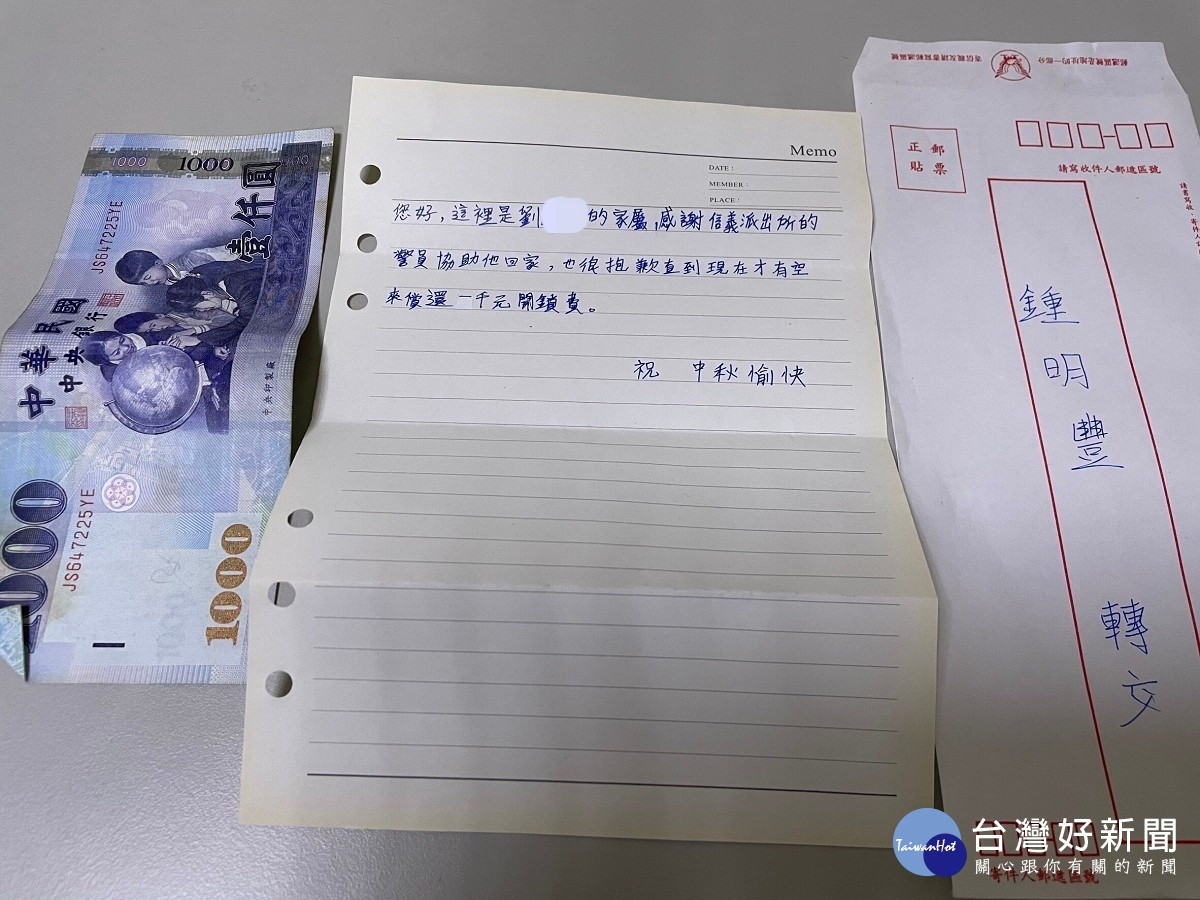 1000
1000
壹仟圓
JS647225YE
中華民國
中央銀行
中央印製廠
1000
JS647225YE
1000
Memo
DATE：
MEMBER：
PLACE：
您好，這裡是劉 的家屬，感謝信義派出所的
警員協助他回家，也很抱歉直到現在才有空
來償還一千元開鎖費。
祝 中秋愉快
郵遞區號是地址的一部分
寄信親友請書寫郵遞區號
正貼
郵票
請寫收件人郵遞區號
鍾明豐
轉交
寄件人郵遞區號
TaiwanHot
台灣好新聞
關心跟你有關的新聞